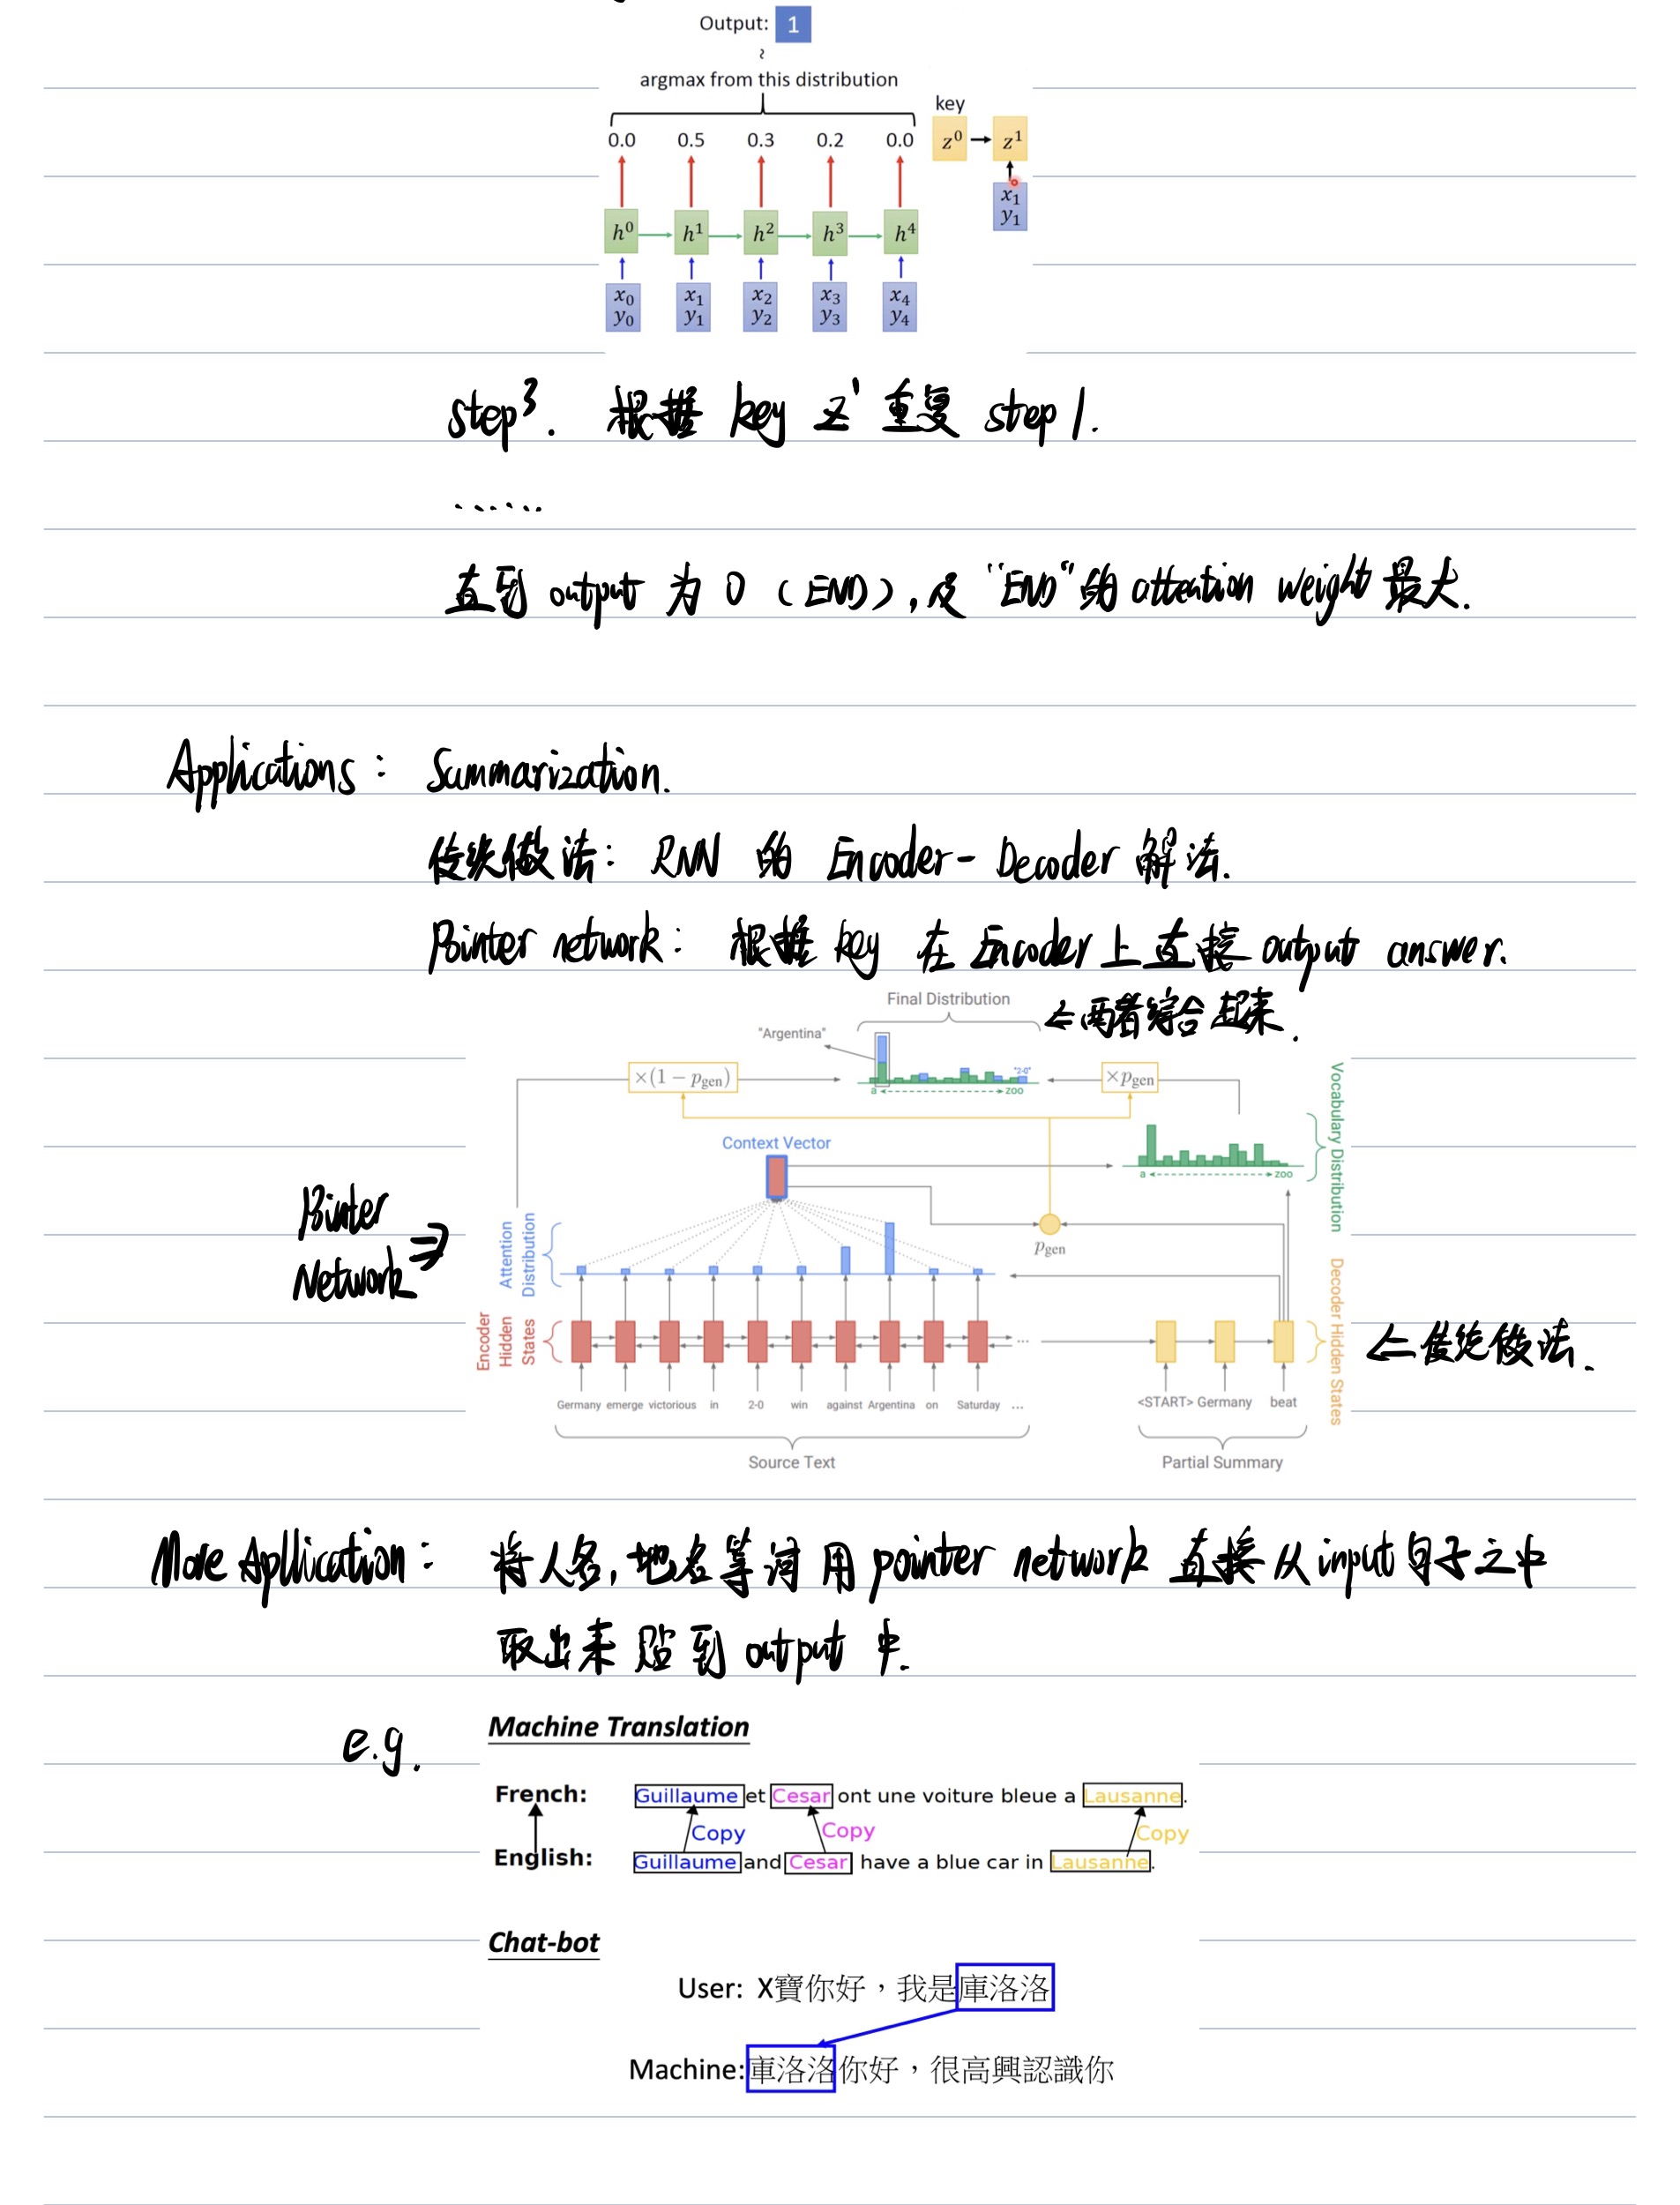 Output: 1
~
argmax from this distribution
0.0 0.5 0.3 0.2 0.0
key
z⁰ z¹
x₁
y₁
h⁰ h¹ h² h³ h⁴
x₀ x₁ x₂ x₃ x₄
y₀ y₁ y₂ y₃ y₄
step 3. 根据 key z¹ 重复 step 1.
......
直到 output 为 0 (END), 及 "END" 的 attention weight 最大.
Applications: Summarization.
传统做法: RNN 的 Encoder-Decoder 解法.
Pointer network: 根据 key 在 Encoder 上直接 output answer.
Final Distribution
⇐ 两者综合起来.
"Argentina"
×(1 − p_gen)
"2-0"
×p_gen
a zoo
Vocabulary Distribution
Context Vector
a zoo
Pointer
Network ⇒
Attention
Distribution
p_gen
Encoder
Hidden
States
...
Decoder Hidden States
⇐ 传统做法.
Germany emerge victorious in 2-0 win against Argentina on Saturday ...
<START> Germany beat
Source Text
Partial Summary
More Apllication: 将人名, 地名等词用 pointer network 直接从 input 句子之中
取出来贴到 output 中.
e.g.
Machine Translation
French: Guillaume et Cesar ont une voiture bleue a Lausanne.
Copy Copy Copy
English: Guillaume and Cesar have a blue car in Lausanne.
Chat-bot
User: X寶你好，我是庫洛洛
Machine: 庫洛洛你好，很高興認識你